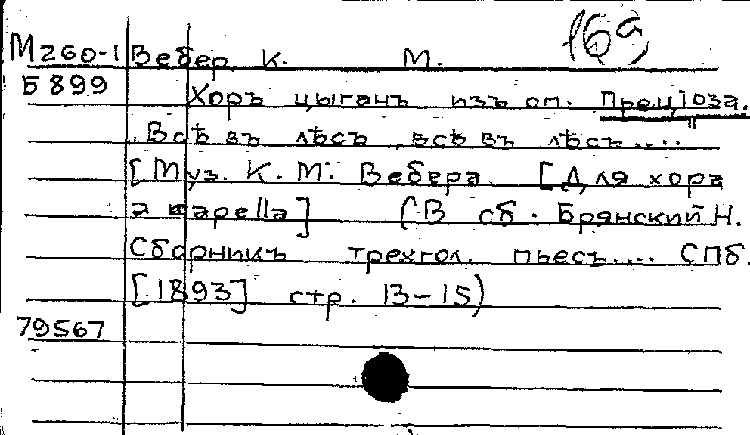 16а
М260-1 Вебер. К. М.
Б899 Хоръ цыганъ изъ оп. Преціоза.
Всѣ въ лѣсъ, всѣ въ лѣсъ....
[Муз. К. М. Вебера. [Для хора
a кapella] (В сб. Брянский Н.
Сборникъ трехгол. пьесъ.... СПб.
[1893] стр. 13-15)
79567